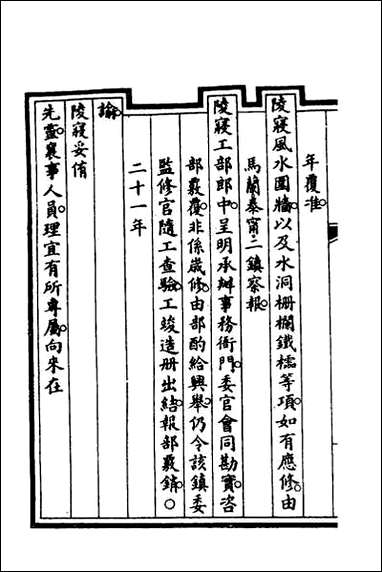 年覆准。
陵寢風水圍牆。以及水洞柵欄鐵檽等項。如有應修。由
馬蘭泰甯二鎮察報。
陵寢工部郎中。呈明承辦事務衙門。委官會同勘實。咨
部覈覆。非係歲修。由部酌給興舉。仍令該鎮委
監修官隨工查驗。工竣造册出結。報部覈銷。○
二十一年
諭。
陵寢妥侑
先靈。襄事人員。理宜有所專屬。向來在